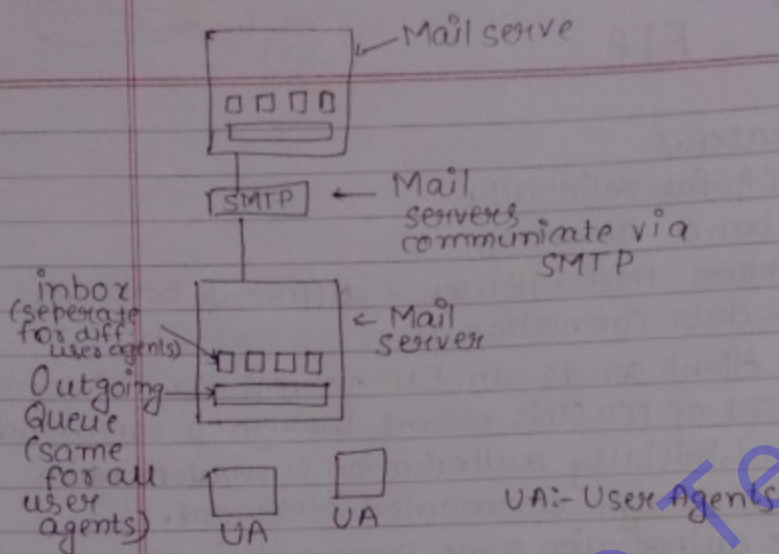 Mail serve
SMTP
Mail
servers
communicate via
SMTP
inbox
(seperate
for diff
user agents)
Mail
server
Outgoing
Queue
(same
for all
user
agents)
UA
UA
UA:- User Agents